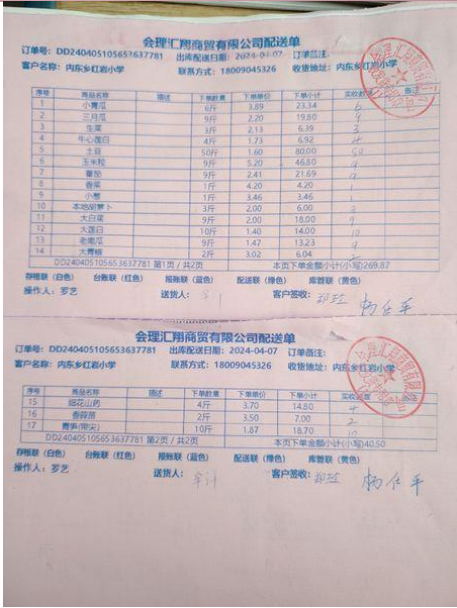 会理汇翔商贸有限公司配送单
订单号: DD240405105653637781 出库配送日期: 2024-04-07 订单备注:
客户名称: 内东乡红岩小学 联系方式: 18009045326 收货地址: 内东乡红岩小学
序号 商品名称 描述 下单数量 下单单价 下单小计 实收数量 备注
1 小黄瓜 6斤 3.89 23.34 6
2 三月瓜 9斤 2.20 19.80 9
3 生菜 3斤 2.13 6.39 3
4 牛心莲白 4斤 1.73 6.92 4
5 土豆 50斤 1.60 80.00 50
6 玉米粒 9斤 5.20 46.80 9
7 番茄 9斤 2.41 21.69 9
8 香菜 1斤 4.20 4.20 1
9 小葱 1斤 3.46 3.46 1
10 本地胡萝卜 3斤 2.00 6.00 3
11 大白菜 9斤 2.00 18.00 9
12 大莲白 10斤 1.40 14.00 10
13 老南瓜 9斤 1.47 13.23 9
14 大青椒 2斤 3.02 6.04 2
DD240405105653637781 第1页 / 共2页 本页下单金额小计(小写)269.87
存根联 (白色) 台账联 (红色) 报账联 (蓝色) 配送联 (绿色) 库管联 (黄色)
操作人: 罗艺 送货人: 客户签收: 杨仕平
会理汇翔商贸有限公司配送单
订单号: DD240405105653637781 出库配送日期: 2024-04-07 订单备注:
客户名称: 内东乡红岩小学 联系方式: 18009045326 收货地址: 内东乡红岩小学
序号 商品名称 描述 下单数量 下单单价 下单小计 实收数量 备注
15 细花山药 4斤 3.70 14.80 4
16 香蒜苗 2斤 3.50 7.00 2
17 青笋(带尖) 10斤 1.87 18.70 10
DD240405105653637781 第2页 / 共2页 本页下单金额小计(小写)40.50
存根联 (白色) 台账联 (红色) 报账联 (蓝色) 配送联 (绿色) 库管联 (黄色)
操作人: 罗艺 送货人: 客户签收: 杨仕平